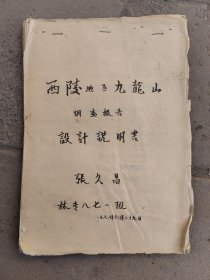 西陵地区九龍山
調查報告
設計說明書
張久昌
林专八七一班